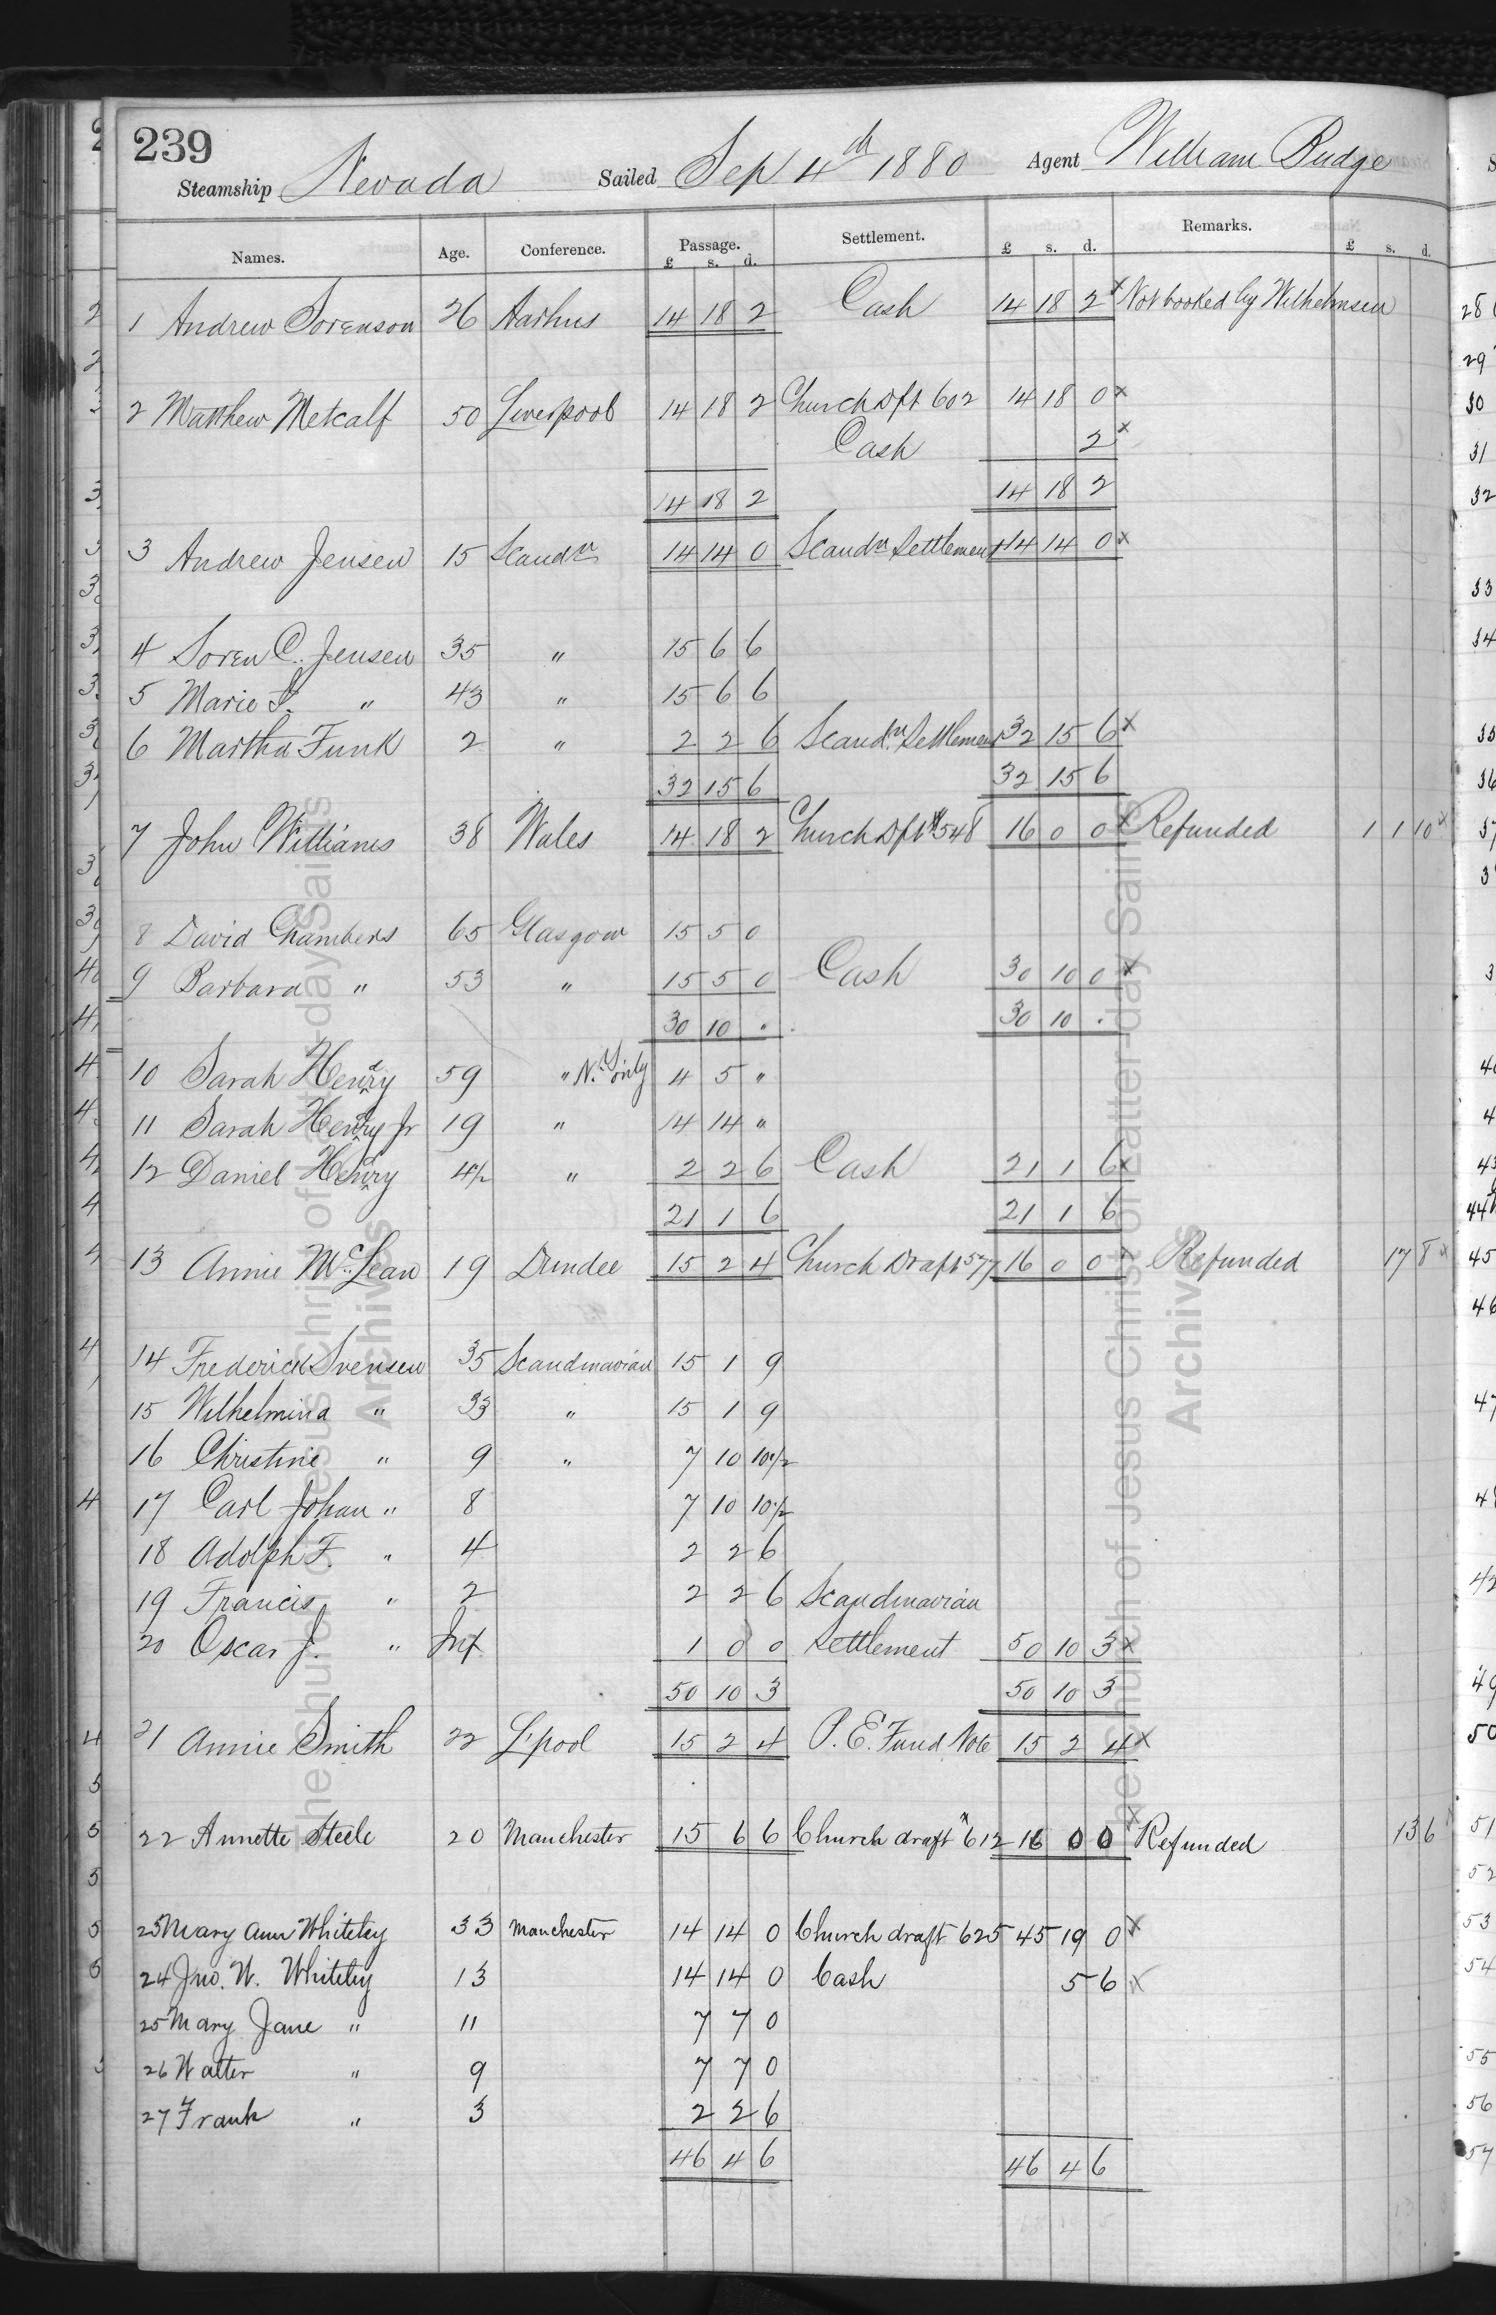 239
Steamship Nevada Sailed Sep 4th 1880 Agent William Budge
Names. Age. Conference. Passage. Settlement. £ s. d. Remarks. £ s. d.
£ s. d.
1 Andrew Sorenson 26 Aarhus 14 18 2 Cash 14 18 2 x Not booked by Wilhelmsen
2 Matthew Metcalf 50 Liverpool 14 18 2 Church Dft 602 14 18 0 x
Cash 2 x
14 18 2 14 18 2
3 Andrew Jensen 15 Scandn 14 14 0 Scandn Settlement 14 14 0 x
4 Soren C. Jensen 35 " 15 6 6
5 Marie S. " 43 " 15 6 6
6 Martha Funk 2 " 2 2 6 Scandn Settlement 32 15 6 x
32 15 6 32 15 6
7 John Williams 38 Wales 14 18 2 Church Dft 548 16 0 0 x Refunded 1 1 10 x
8 David Chambers 65 Glasgow 15 5 0
9 Barbara " 53 " 15 5 0 Cash 30 10 0 x
30 10 " 30 10 .
10 Sarah Henry 59 " N.Y. only 4 5 "
11 Sarah Henry Jr 19 " 14 14 "
12 Daniel Henry 4½ " 2 2 6 Cash 21 1 6 x
21 1 6 21 1 6
13 Annie McLean 19 Dundee 15 2 4 Church Draft 577 16 0 0 x Refunded 17 8 x
14 Frederick Svensen 35 Scandinavian 15 1 9
15 Wilhelmina " 33 " 15 1 9
16 Christine " 9 " 7 10 10½
17 Carl Johan " 8 7 10 10½
18 Adolph F. " 4 2 2 6
19 Francis " 2 2 2 6 Scandinavian
20 Oscar J. " Inf 1 0 0 Settlement 50 10 3 x
50 10 3 50 10 3
21 Annie Smith 22 L'pool 15 2 4 P. E. Fund No 6 15 2 4 x
22 Annette Steele 20 Manchester 15 6 6 Church draft 612 16 0 0 x Refunded 13 6
23 Mary Ann Whiteley 33 Manchester 14 14 0 Church draft 625 45 19 0 x
24 Jno. W. Whiteley 13 14 14 0 Cash 5 6 x
25 Mary Jane " 11 7 7 0
26 Walter " 9 7 7 0
27 Frank " 3 2 2 6
46 4 6 46 4 6
The Church of Jesus Christ of Latter-day Saints
Archives
The Church of Jesus Christ of Latter-day Saints
Archives